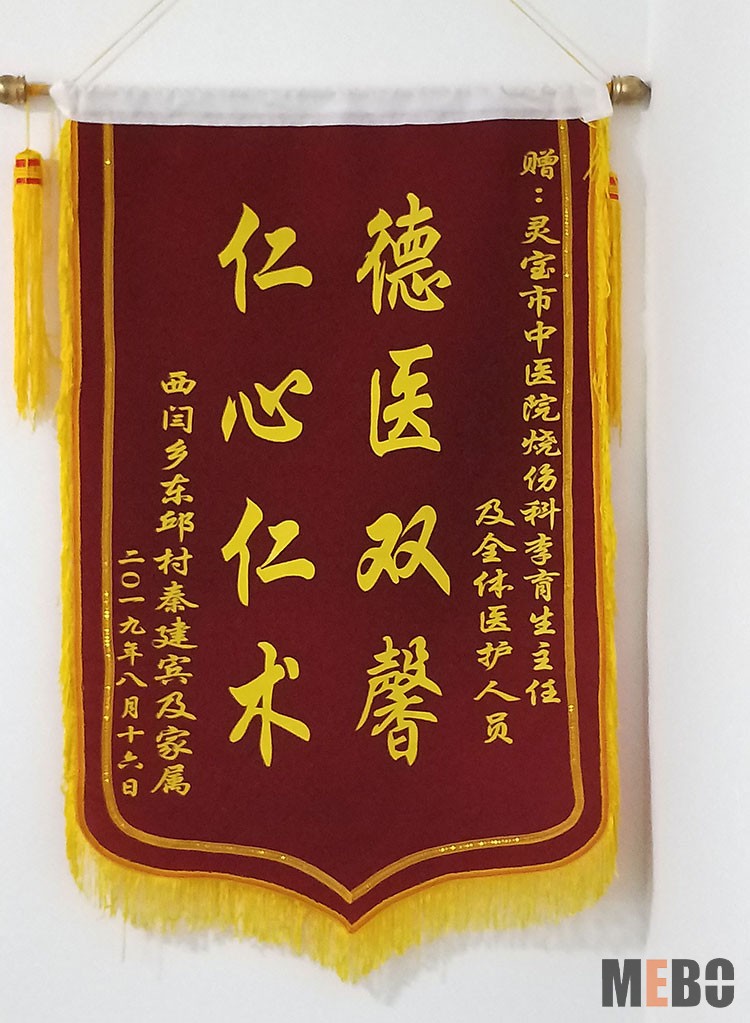 赠：灵宝市中医院烧伤科李育生主任
及全体医护人员
德医双馨
仁心仁术
西闫乡东邱村秦建宾及家属
二〇一九年八月十六日
MEBO